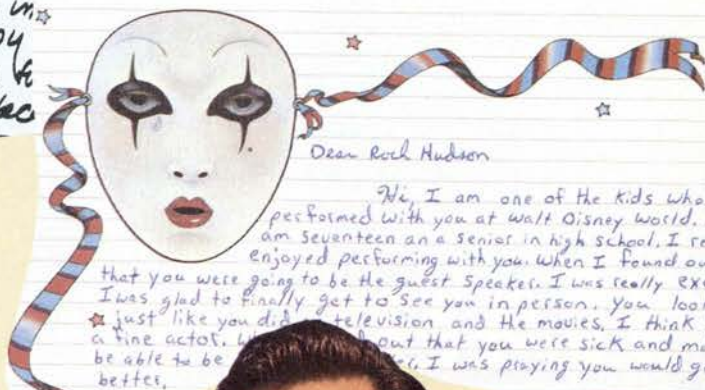 in
Dear Rock Hudson
Hi, I am one of the kids who
performed with you at Walt Disney World.
am seventeen an a senior in high school. I re
enjoyed performing with you. When I found ou
that you were going to be the guest speaker. I was really exc
I was glad to finally get to see you in person. You loo
just like you did television and the movies. I think
a fine actor. out that you were sick and m
be able to be I was praying you would g
better,